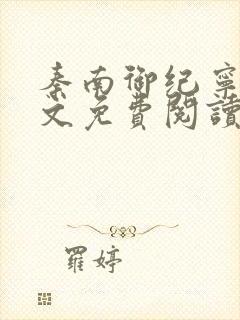 秦南御纪寧
文免費閱讀
羅婷